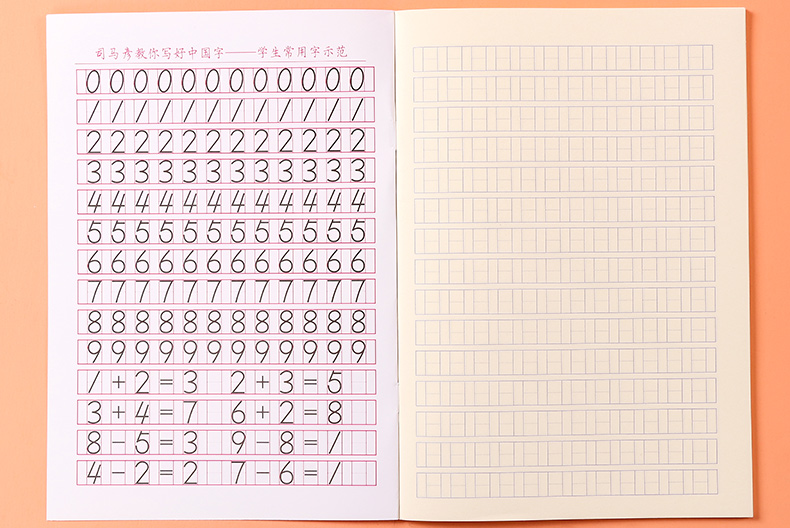 司马彦教你写好中国字——学生常用字示范
0 0 0 0 0 0 0 0 0 0 0 0
1 1 1 1 1 1 1 1 1 1 1 1
2 2 2 2 2 2 2 2 2 2 2 2
3 3 3 3 3 3 3 3 3 3 3 3
4 4 4 4 4 4 4 4 4 4 4 4
5 5 5 5 5 5 5 5 5 5 5 5
6 6 6 6 6 6 6 6 6 6 6 6
7 7 7 7 7 7 7 7 7 7 7 7
8 8 8 8 8 8 8 8 8 8 8 8
9 9 9 9 9 9 9 9 9 9 9 9
1 + 2 = 3 2 + 3 = 5
3 + 4 = 7 6 + 2 = 8
8 - 5 = 3 9 - 8 = 1
4 - 2 = 2 7 - 6 = 1